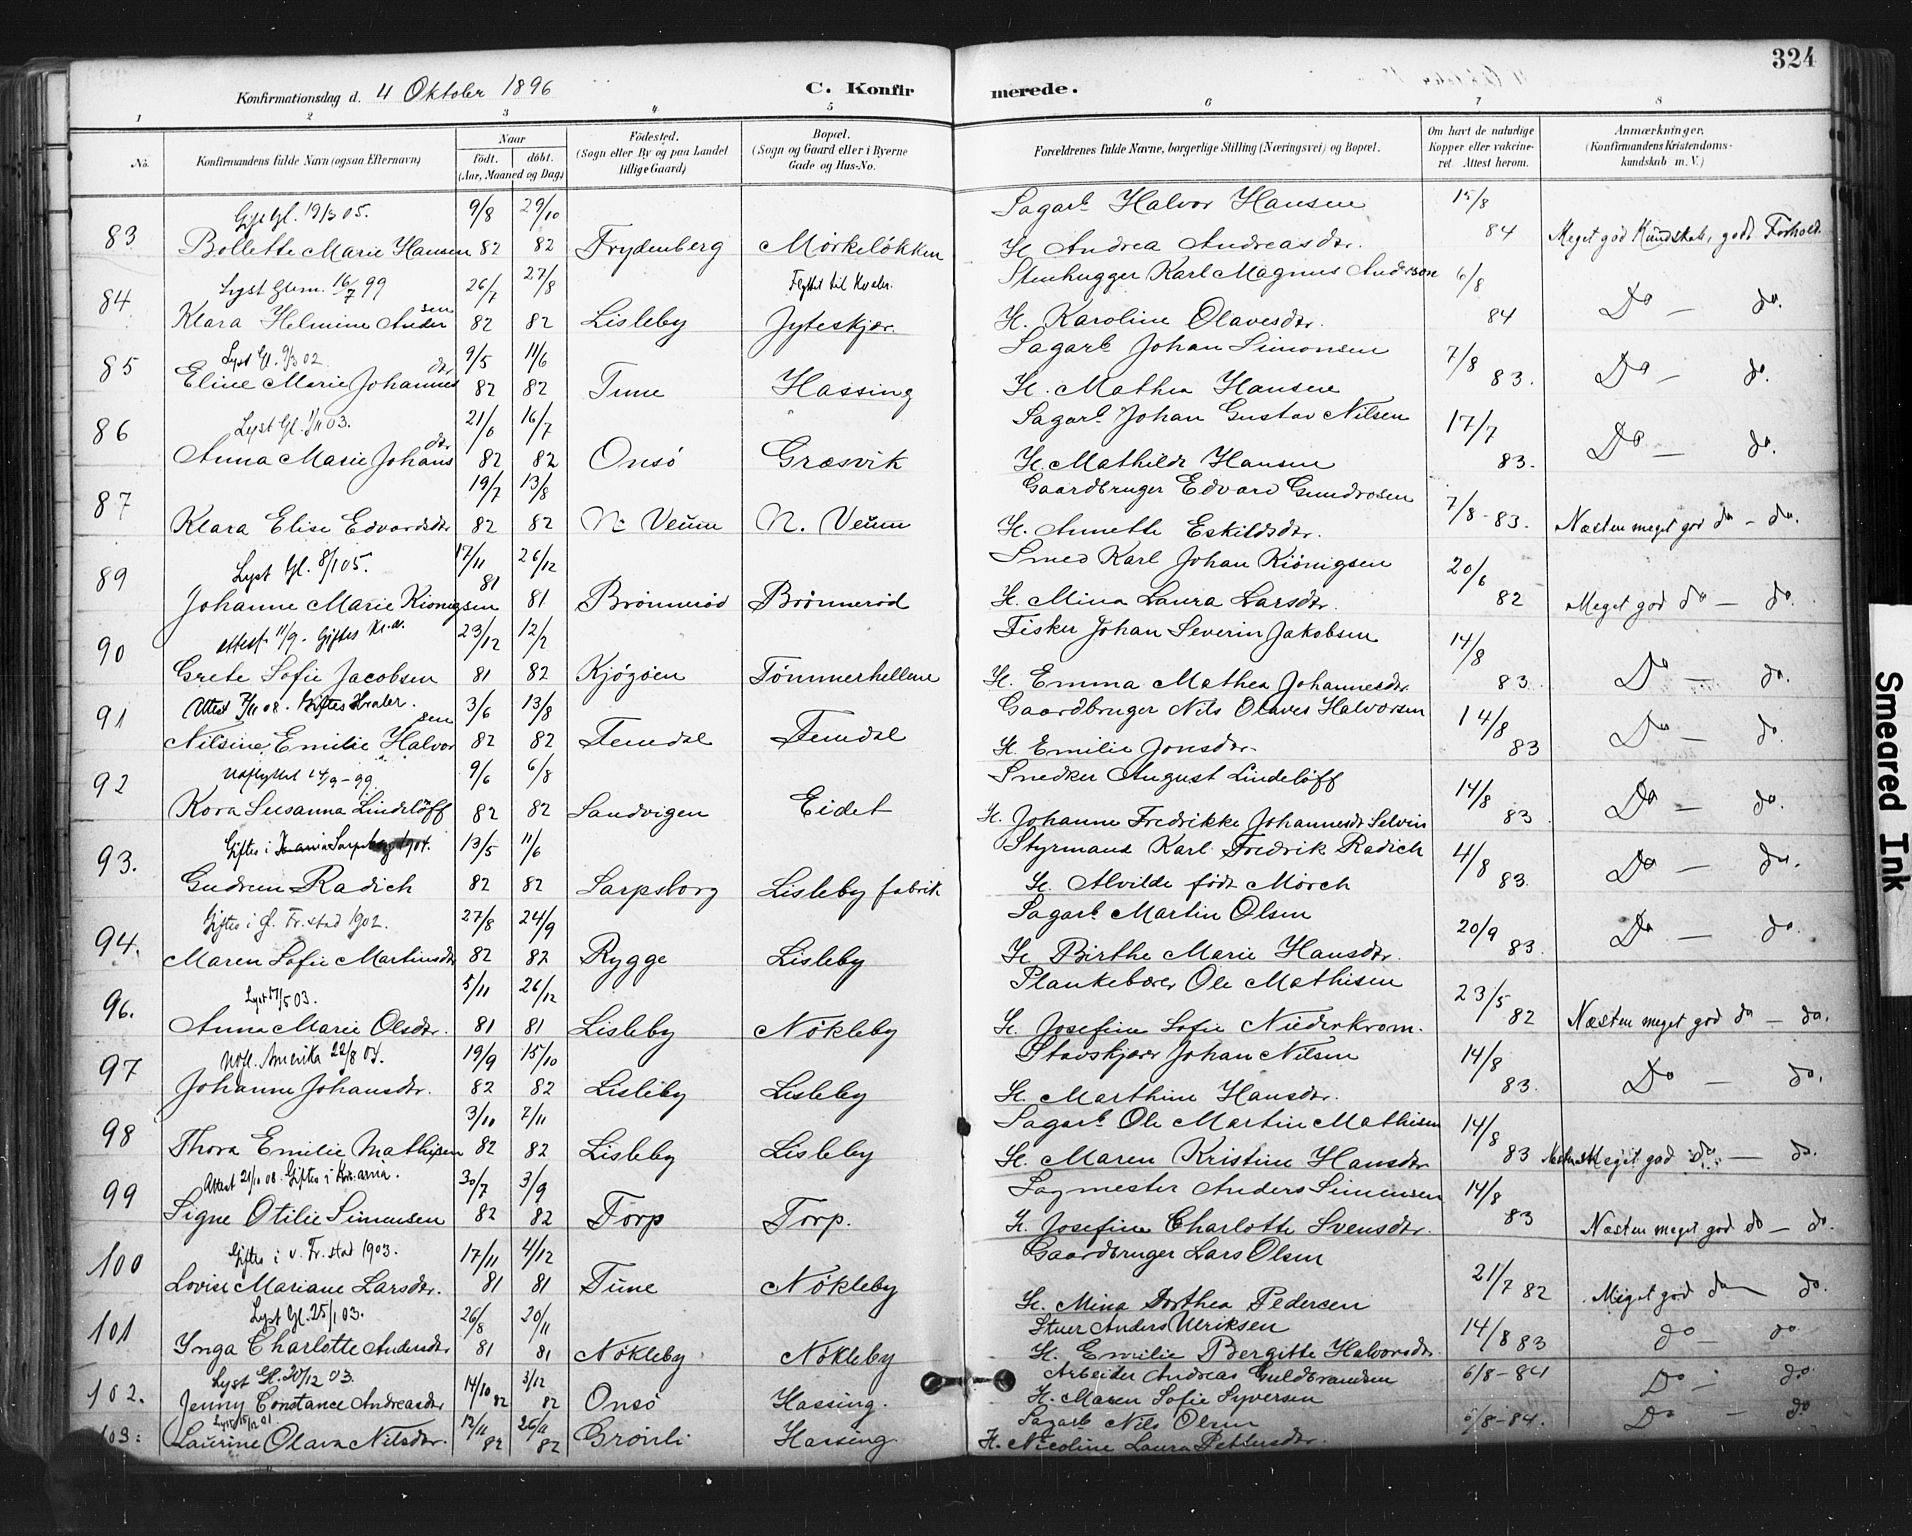 324
Konfirmationsdag d. 4 Oktober 1896 C. Konfir merede.
1 2 3 4 5 6 7 8
No. Konfirmandens fulde Navn (ogsaa Efternavn)
Naar
födt. döbt.
(Aar, Maaned og Dag)
Födested.
(Sogn eller By og paa Landet
tillige Gaard)
Bopæl.
(Sogn og Gaard eller i Byerne
Gade og Hus-No.
Forældrenes fulde Navne, borgerlige Stilling (Næringsvei) og Bopæl.
Om havt de naturlige
Kopper eller vakcine-
ret. Attest herom.
Anmærkninger.
(Konfirmandens Kristendoms-
kundskab m. V.)
19/3 05. 9/8 29/10 Sagarb Halvor Hansen 15/8
83 Bollette Marie Hansen 82 82 Frydenberg Mørkeløkken H. Andrea Andreasdtr. 84 Meget god Kundskab, godt Forhold
Lyst Glem. 16/7 99 26/7 27/8 Flyttet til Hvaler. Stenhugger Karl Magnus Anderson 6/8
84 Klara Helmine Andersen 82 82 Lisleby Jyteskjær. H. Karoline Olavesdtr. 84 Do — do.
Lyst Gl. 9/3 02 9/5 11/6 Sagarb Johan Simonsen 7/8
85 Eline Marie Johannesdtr 82 82 Tune Hassing H. Mathea Hansen 83. Do — do.
Lyst Gl. 1/11 03. 21/6 16/7 Sagarb Johan Gustav Nilsen 17/7
86 Anna Marie Johansdtr 82 82 Onsö Græsvik H. Mathilde Hansen 83. Do — do.
19/7 13/8 Gaardbruger Edvard Gundrosen
87 Klara Elise Edvardsdtr 82 82 N. Veum N. Veum H. Annette Eskildsdtr. 7/8-83. Næsten meget god do — do.
Lyst Gl. 8/1 05. 17/11 26/12 Smed Karl Johan Kiönigsen 20/6
89 Johanne Marie Kionigsen 81 81 Brønnerød Brønnerød H. Mina Laura Larsdtr. 82 Meget god do — do.
attest 11/9 - Giftes Kr.a. 23/12 12/2 Fisker Johan Severin Jakobsen 14/8
90 Grete Sofie Jacobsen 81 82 Kjøgöen Tømmerhellene H. Emma Mathea Johannesdtr. 83 Do — do.
Attest 7/11 08. Giftes Hvaler. 3/6 13/8 Gaardbruger Nils Olaves Halvorsen 14/8
91 Nilsine Emilie Halvorsen 82 82 Femdal Femdal H. Emilie Jonsdtr. 83 Do — do.
Udflyttet 14/9-99 9/6 6/8 Snedker August Lindeløff 14/8
92 Kora Susanna Lindeløff 82 82 Sandvigen Eidet H. Johanne Fredrikke Johannesdtr Selvin 83 Do — do.
Giftes i Sarpsborg 1904. 13/5 11/6 Styrmand Karl Fredrik Radich 4/8
93. Gudrun Radich 82 82 Sarpsborg Lisleby fabrik H. Alvilde født Mörch 83. Do — do.
Giftes i Gl. Fr.stad 1902. 27/8 24/9 Sagarb Martin Olsen 20/9
94. Maren Sofie Martinsdtr 82 82 Rygge Lisleby H. Birthe Marie Hansdtr. 83. Do — do.
Lyst 17/5 03. 5/11 26/12 Plankebærer Ole Mathisen 23/5
96. Anna Marie Olsdtr. 81 81 Lisleby Nökleby H. Josefine Sofie Niederkrom. 82 Næsten meget god do — do.
Udfl. Amerika 22/8 04. 19/9 15/10 Stavskjærer Johan Nilsen 14/8
97 Johanne Johansdtr. 82 82 Lisleby Lisleby H. Marthine Hansdtr. 83. Do — do.
3/10 7/11 Sagarb Ole Martin Mathisen 14/8
98 Thora Emilie Mathisen 82 82 Lisleby Lisleby H. Maren Kristine Hansdtr 83 Meget god do — do.
Attest 21/10 08. Giftes i Kr.ania. 30/7 3/9 Sagmester Anders Simensen 14/8
99 Signe Otilie Simensen 82 82 Torp Torp. H. Josefine Charlotte Svensdtr. 83 Næsten meget god do — do.
Giftes i v. Fr.stad 1903. 17/11 4/12 Gaardbruger Lars Olsen
100 Lovise Mariane Larsdtr. 81 81 Tune Nökleby H. Mina Dorthea Pedersen 21/7 82 Meget god do — do.
Lyst Gl. 25/1 03. 26/8 20/11 Stuer Anders Ulriksen
101 Ynga Charlotte Andersdtr 81 81 Nökleby Nökleby H. Emilie Bergitte Halvorsdtr. 14/8 83 do — do
Lyst Gl. 20/12 03. 14/10 3/12 Arbeider Andreas Guldbrandsen
102. Jenny Constance Andreasdtr 82 82 Onsö Hassing. H. Maren Sofie Syversen 6/8-84 Do — do.
Lyst 15/12 01 12/11 26/11 Sagarb Nils Olsen
103. Laurine Olava Nilsdtr. 82 82 Grönli Hassing H. Nicoline Laura Pettersdtr. 6/8-84. Do — do
Smeared Ink